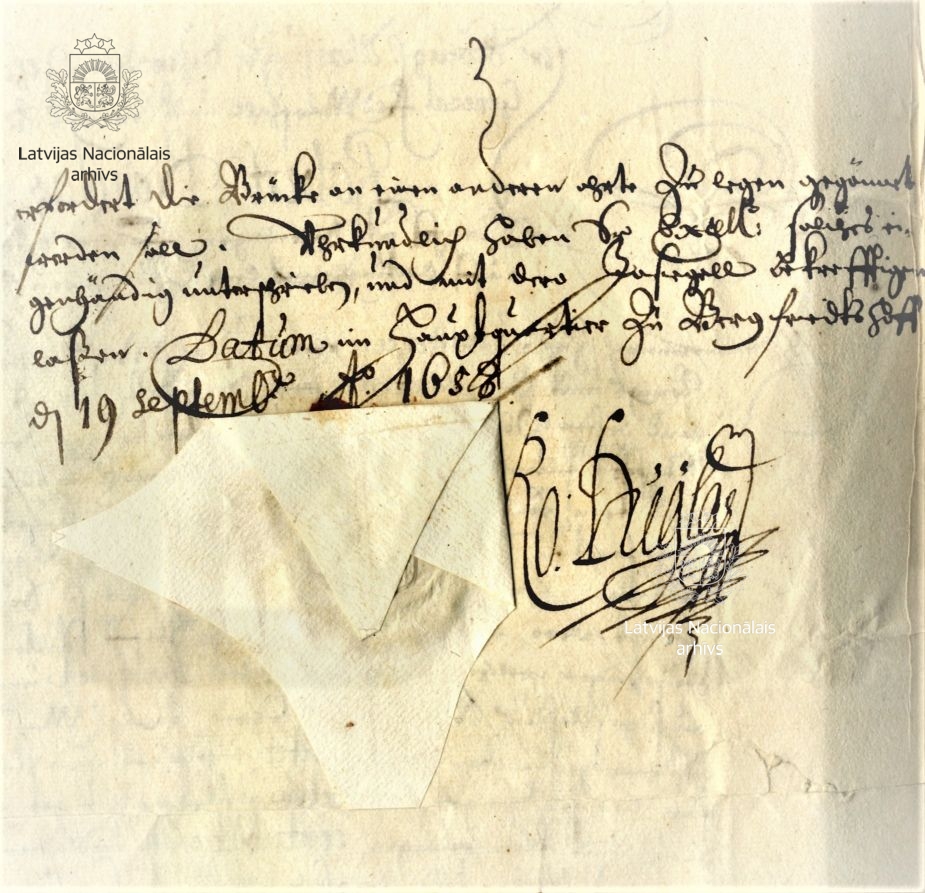 Latvijas Nacionālais
arhīvs
erfordert die Brücke an einen anderen ohrte zu legen gegönnet
werden soll. Uhrkundlich haben Se Excell: solches ei-
genhändig unterschrieben, und mit dero Insiegell bekrefftigen
laßen. Datum im Haupbquartier zu Bergfriedtshoff
dj 19 Septemb: Ao. 1658
Ro. Duglas
Latvijas Nacionālais
arhīvs